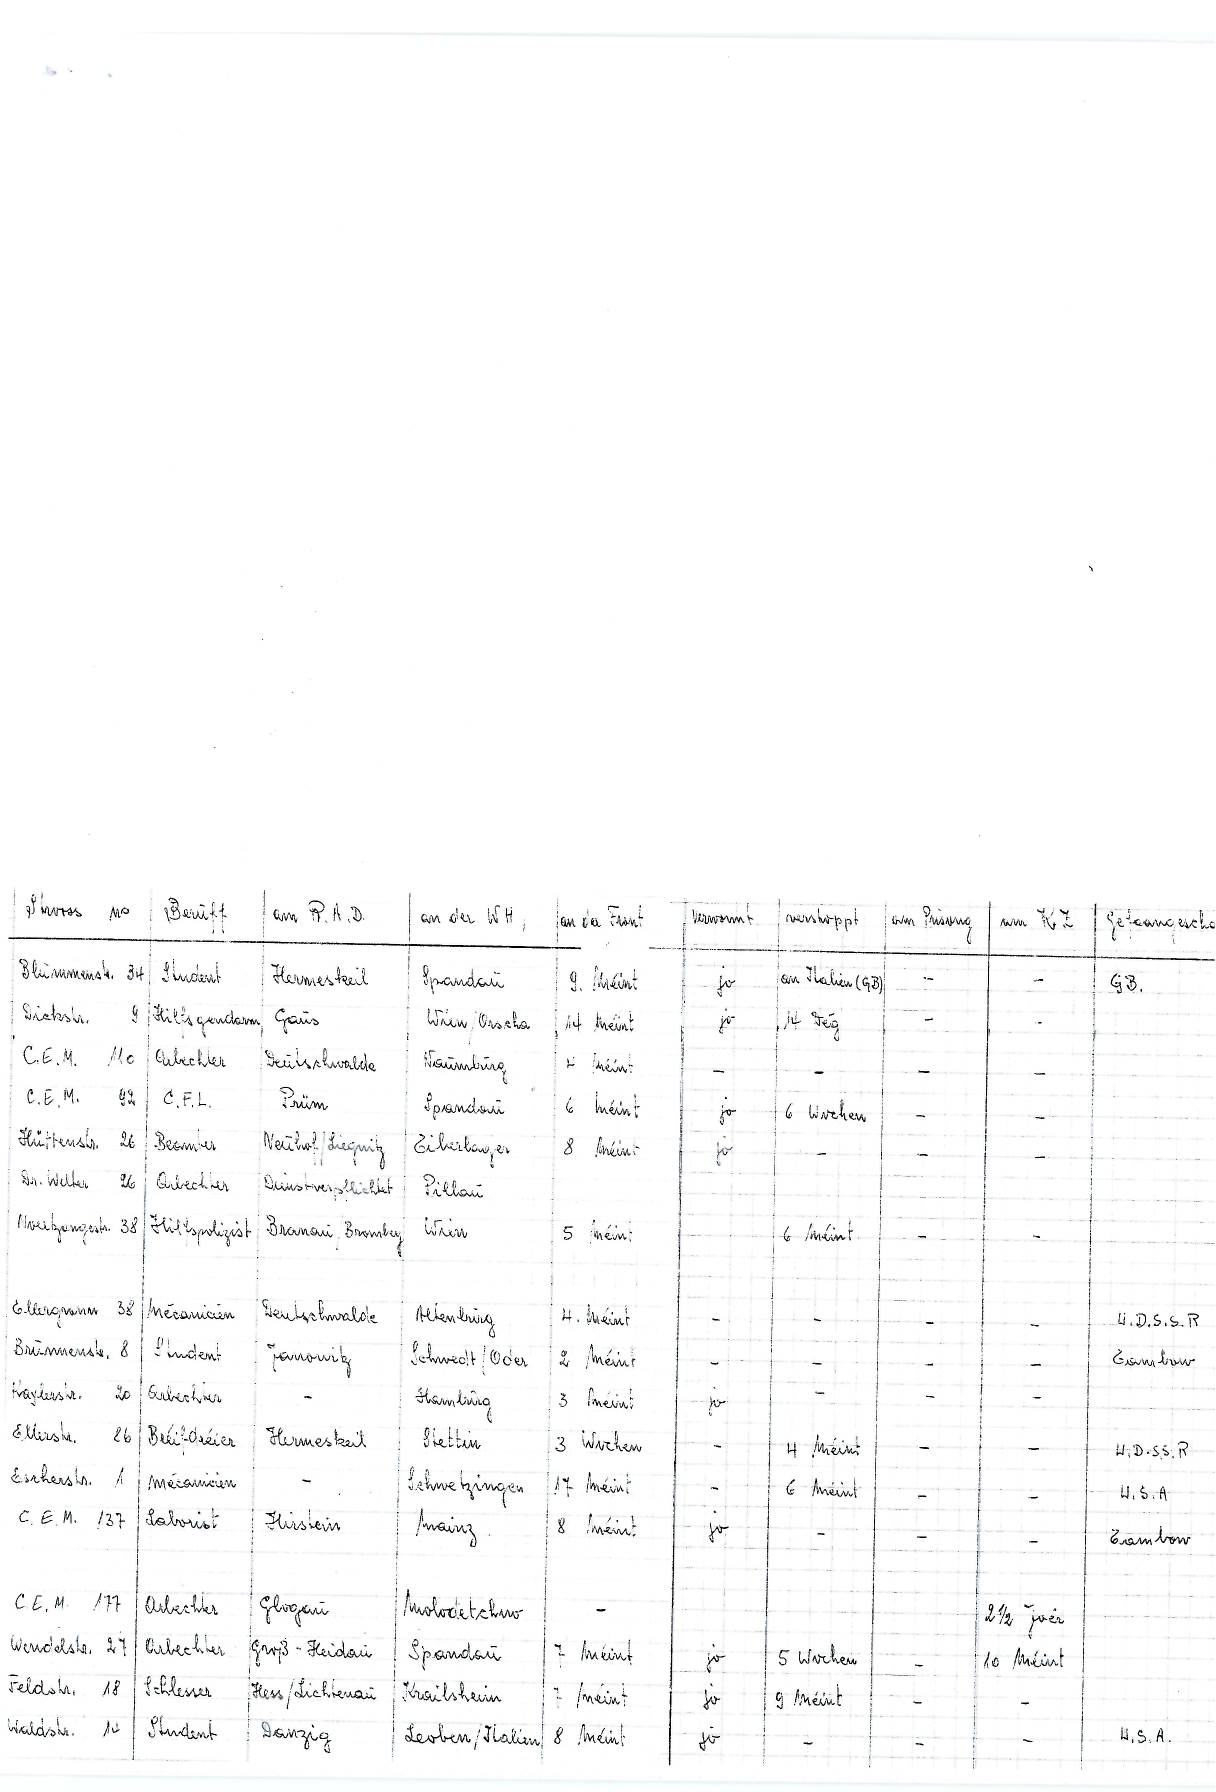 Strooss no Beruff am R.A.D. an der WH, an der Front verwonnt verstoppt am Prisong am KZ Gefaangescha
Blummenstr. 34 Student Hermeskeil Spandau 9. Méint jo an Italien (GB) - - GB.
Dickstr. 9 Hilfsgendarm Gaus Wien/Orscha 14 Méint jo 14 Deg - -
C.E.M. 110 Arbechter Deutschwalde Naumburg 4 Méint - - - -
C.E.M. 92 C.F.L. Prüm Spandau 6 Méint jo 6 Wochen - -
Hüttenstr. 26 Beamter Neuhof/Liegnitz 8 Méint jo - - -
Dr. Welter 26 Arbechter Dienstverpflichtet Pillau
38 Hilfspolizist Branau, Bromberg Wien 5 Méint 6 Méint - -
Ellergronn 38 Mécanicien Deutschwalde Altenburg 4. Méint - - - - U.D.S.S.R
Brunnenstr. 8 Student Janowitz Schwedt/Oder 2 Méint - - - - Tambow
Kaylerstr. 20 Arbechter - Hamburg 3 Méint jo - - -
Ellerstr. 26 Bréifdréier Hermeskeil Stettin 3 Wochen - 4 Méint - - U.D.S.S.R
Escherstr. 1 Mécanicien - Schwetzingen 17 Méint - 6 Méint - - U.S.A
C.E.M. 137 Laborist Hirstein Mainz 8 Méint jo - - - Tambow
C.E.M. 177 Arbechter Glogau Molodetchno - 2½ Joer
Wendelstr. 27 Arbechter Groß-Heidau Spandau 7 Méint jo 5 Wochen - 10 Méint
Feldstr. 18 Schlesser Hess/Lichtenau Krailsheim 7 Méint jo 9 Méint - -
Waldstr. 14 Student Danzig Leoben/Italien 8 Méint jo - - - U.S.A.